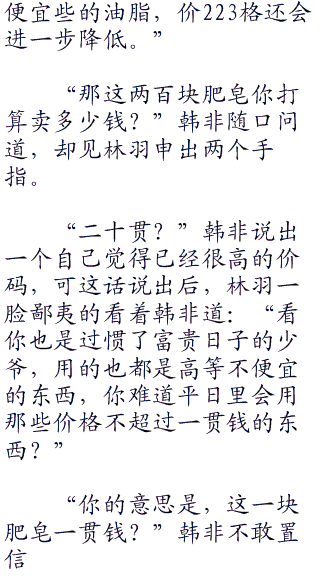 便宜些的油脂，价223格还会
进一步降低。”
“那这两百块肥皂你打
算卖多少钱？”韩非随口问
道，却见林羽申出两个手
指。
“二十贯？”韩非说出
一个自己觉得已经很高的价
码，可这话说出后，林羽一
脸鄙夷的看着韩非道：“看
你也是过惯了富贵日子的少
爷，用的也都是高等不便宜
的东西，你难道平日里会用
那些价格不超过一贯钱的东
西？”
“你的意思是，这一块
肥皂一贯钱？”韩非不敢置
信